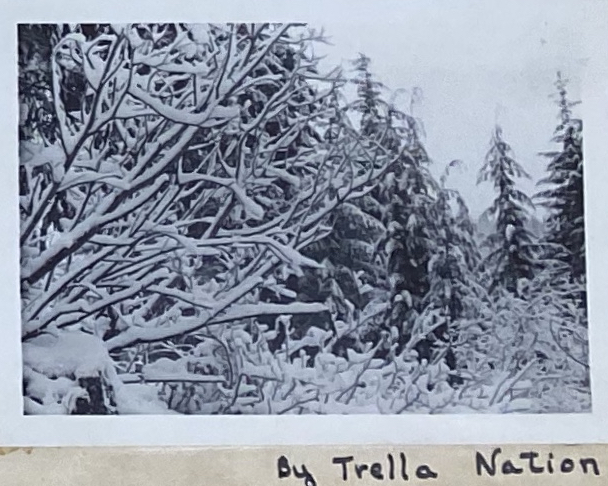 By Trella Nation